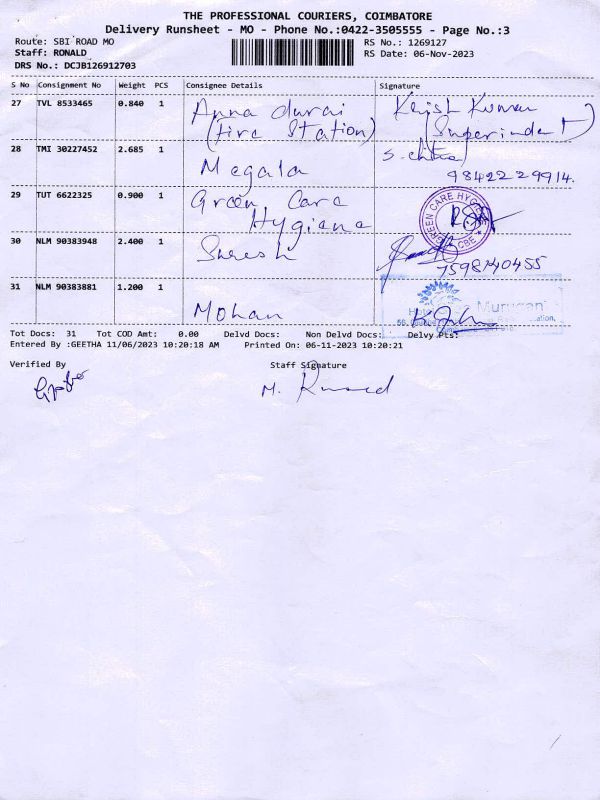 THE PROFESSIONAL COURIERS, COIMBATORE
Delivery Runsheet - MO - Phone No.:0422-3505555 - Page No.:3
Route: SBI ROAD MO RS No.: 1269127
Staff: RONALD RS Date: 06-Nov-2023
DRS No.: DCJB126912703
S No Consignment No Weight PCS Consignee Details Signature
27 TVL 8533465 0.840 1 Anna durai Kumar
(Fire Station)
28 TMI 30227452 2.685 1 Megala
9842229914.
29 TUT 6622325 0.900 1 Green Care
Hygiene GREEN CARE CBE
30 NLM 90383948 2.400 1 Suresh
31 NLM 90383881 1.200 1 Mohan Murugan
Tot Docs: 31 Tot COD Amt: 0.00 Delvd Docs: Non Delvd Docs: Delvy Pts:
Entered By :GEETHA 11/06/2023 10:20:18 AM Printed On: 06-11-2023 10:20:21
Verified By Staff Signature
M.